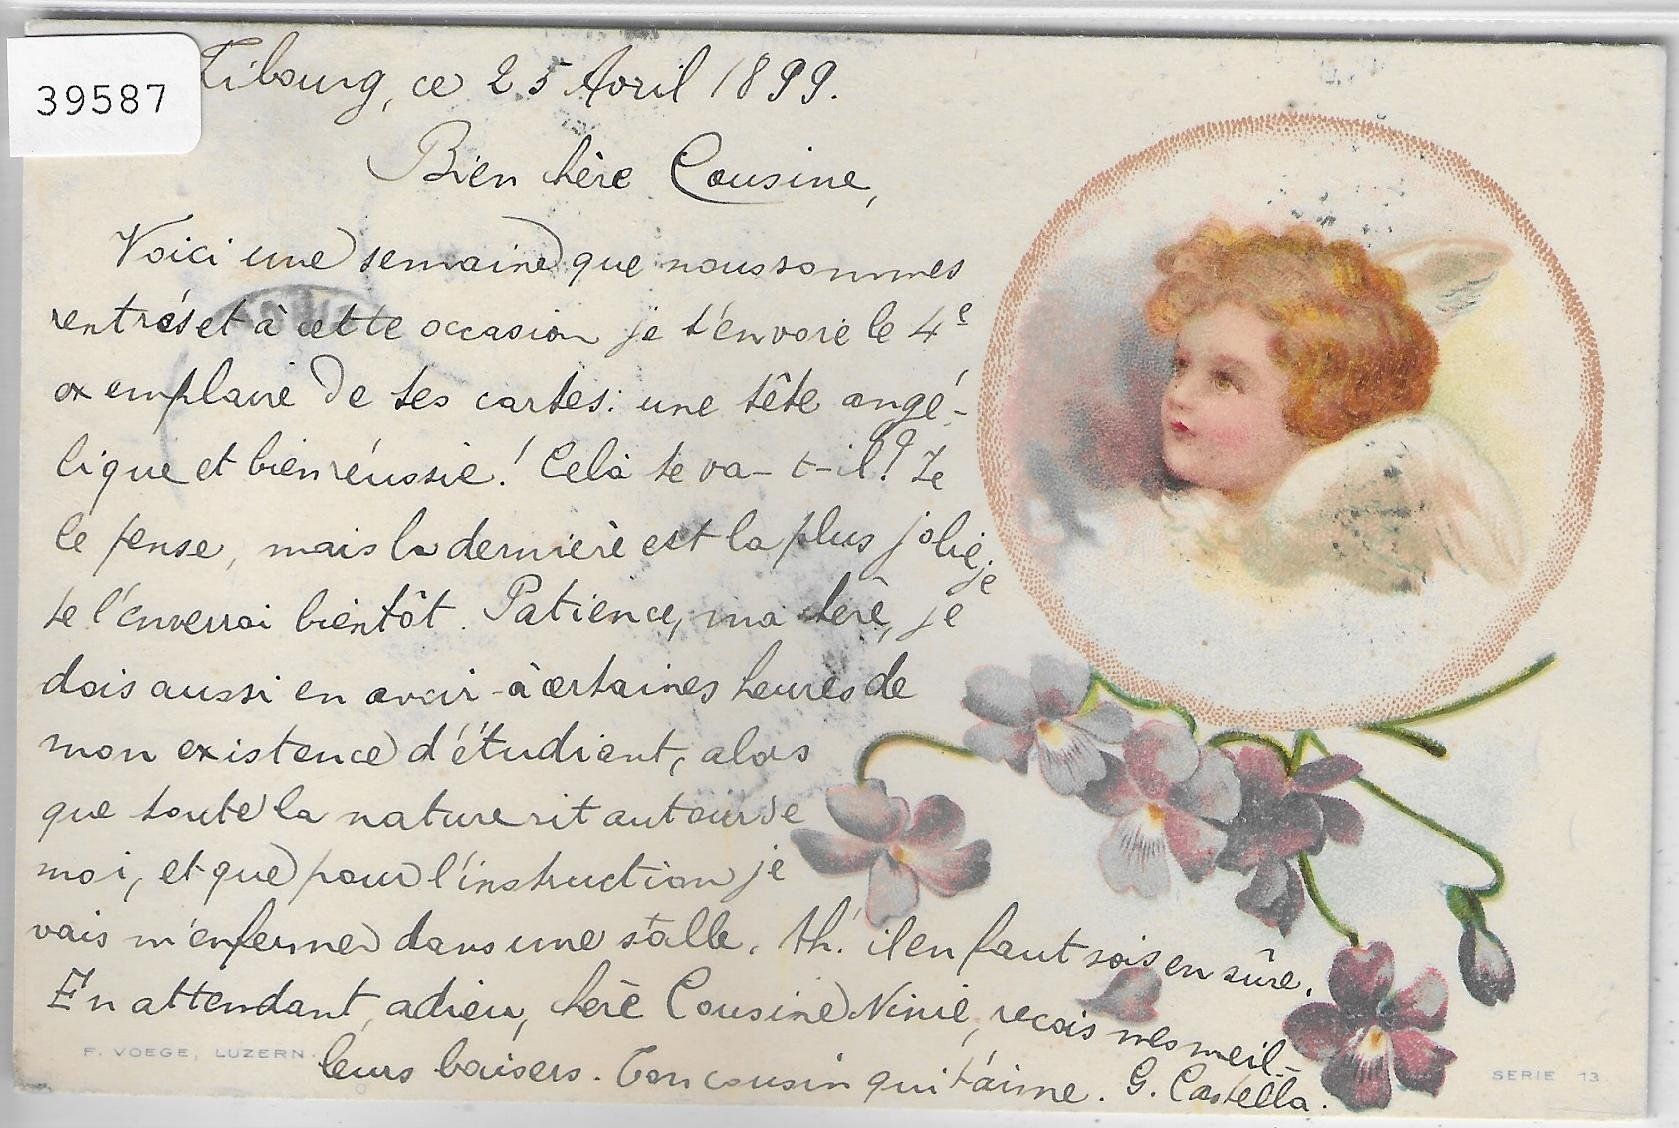 39587
Fribourg, ce 25 Avril 1899.
Bien chère Cousine,
Voici une semaine que nous sommes
rentrés et à cette occasion je t'envoie le 4e
exemplaire de tes cartes: une tête angé-
lique et bien réussie! Celà te va-t-il? Je
le pense, mais la dernière est la plus jolie, je
te l'enverrai bientôt. Patience, ma chère, je
dois aussi en avoir à certaines heures de
mon existence d'étudiant, alors
que toute la nature rit autour de
moi, et que pour l'instruction je
vais m'enfermer dans une salle. Ah! il en faut sois en sûre.
En attendant, adieu, chère Cousine Ninie, reçois mes meil-
leurs baisers. Ton cousin qui t'aime. G. Castella.
F. VOEGE, LUZERN.
SERIE 13